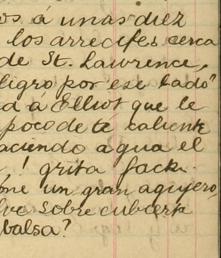 os á unas diez
los arrecifes cerca
de St. Lawrence.
ligro por ese lado"
a a Elliot que le
poco de te caliente
aciendo agua el
! grita Jack.
one un gran agujero,
lve sobre cubierta
balsa?